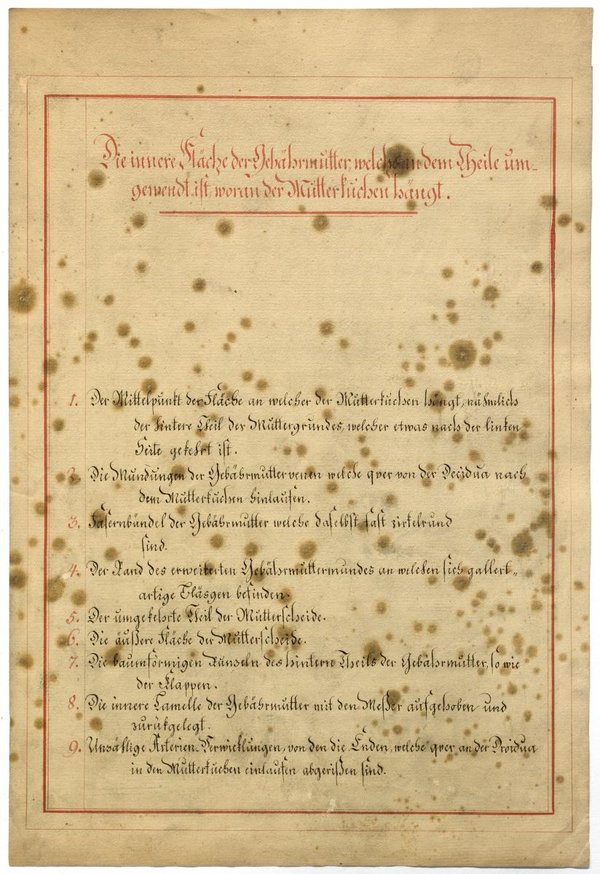 Die innere Fläche der Gebährmutter, welche an dem Theile um-
gewendt ist, woran der Mutterkuchen hängt.
1. Der Mittelpunkt der Fläche an welcher der Mutterkuchen hängt, nähmlich
der hintere Teil der Muttergrundes, welcher etwas nach der linken
Seite gekehrt ist.
2. Die Mundungen der Gebährmuttervenen welche quer von der Decidua nach
dem Mutterkuchen hinlaufen.
3. Fasernbündel der Gebährmutter welche daselbst fast zirkelrund
sind.
4. Der Rand des erweiterten Gebährmuttermundes an welchen sich gallert-
artige befinden.
5. Der umgekehrte Teil der Mutterscheide.
6. Die äußere Fläche der Mutterscheide.
7. Die baumförmigen Runzeln des hintern Theils der Gebährmutter, so wie
der Klappen.
8. Die innere Lamelle der Gebährmutter mit den Meßer aufgehoben und
zurükgelegt.
9. Unzällige Arterien-Verwicklungen, von den die Enden, welche quer an der
in den Mutterkuchen einlaufen abgerißen sind.